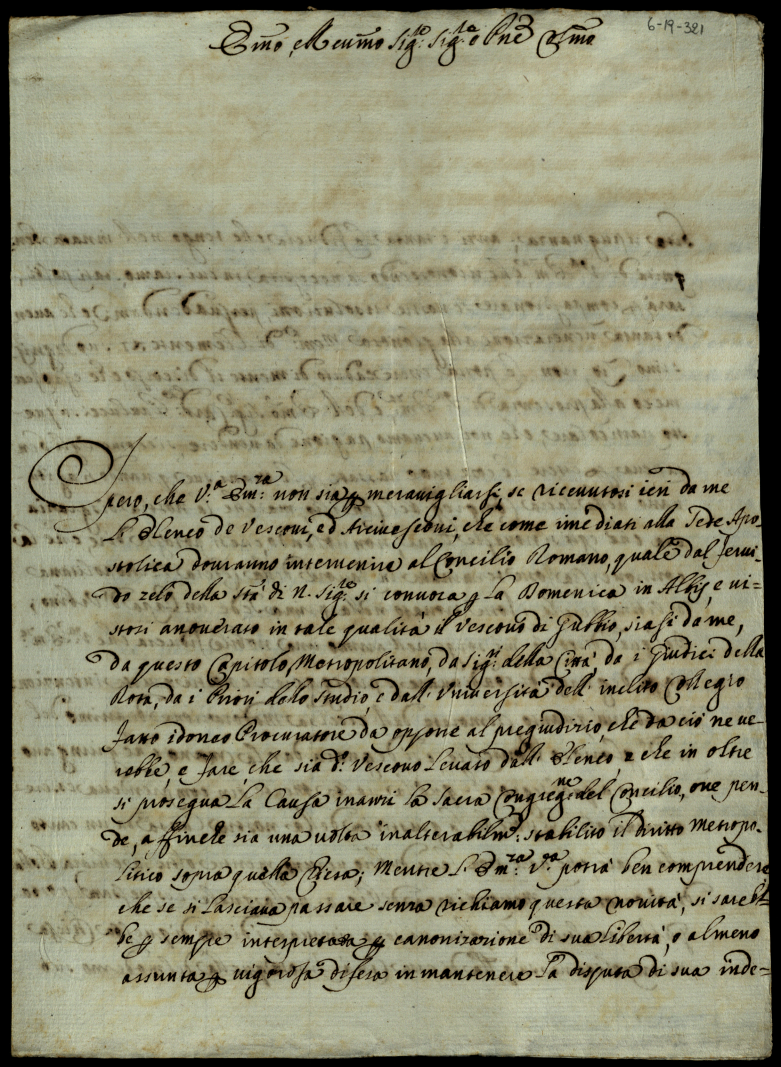 6-19-321
Emo, e Reumo Sig.r Sig.r e Pne Cmo
Spero, che V.a Em.za non sia p meravigliarsi, se ricevutosi ieri da me
L'Elenco de Vescoui, ed Arciuescoui, che come imediati alla Sede Apo-
stolica douranno interuenire al Concilio Romano, quale dal ferui-
do zelo della Stà di N. Sig.re si conuoca p La Domenica in Albis, e ui-
stosi anouerato in tale qualità il Vescouo di Gubbio, siasi da me,
da questo Capitolo Metropolitano, da Sig.ri della Città, da i Giudici della
Rota, da i Priori dello Studio, e dall' Vniuersità dell' inclito Collegio
fatto idoneo Procuratore da opporre al pregiudizio, che da ciò ne ue-
rebbe, e fare che sia d.o Vescouo Leuato dall' Elenco, e che in oltre
si prosegua La Causa inanzi La Sacra Congreg.ne del Concilio, oue pen-
de, affinche sia una uolta inalterabilm.e stabilito il diritto Metropo-
litico sopra quella Chiesa; Mentre L' Em.za V.a potrà ben comprendere
che se si Lasciaua passare senza richiamo questa nouità, si sareb-
be p sempre interpretata p canonizazione di sua Libertà, o almeno
assunta p uigorosa difesa in mantenere La disputa di sua inde-